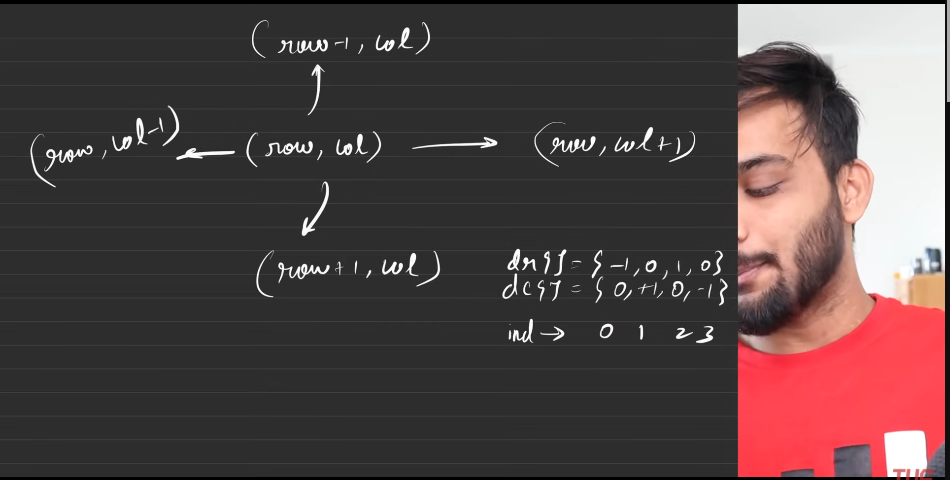 (row-1, col)
(row, col-1) ← (row, col) → (row, col+1)
(row+1, col)
dr[] = {-1, 0, 1, 0}
dc[] = {0, +1, 0, -1}
ind → 0 1 2 3